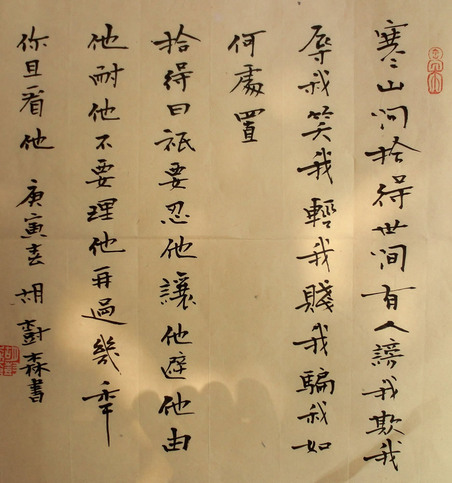 寒山问拾得世间有人谤我欺我
辱我笑我輕我賤我騙我如
何處置
拾得曰祇要忍他讓他避他由
他耐他不要理他再過幾年
你且看他 庚寅春 胡樹森書